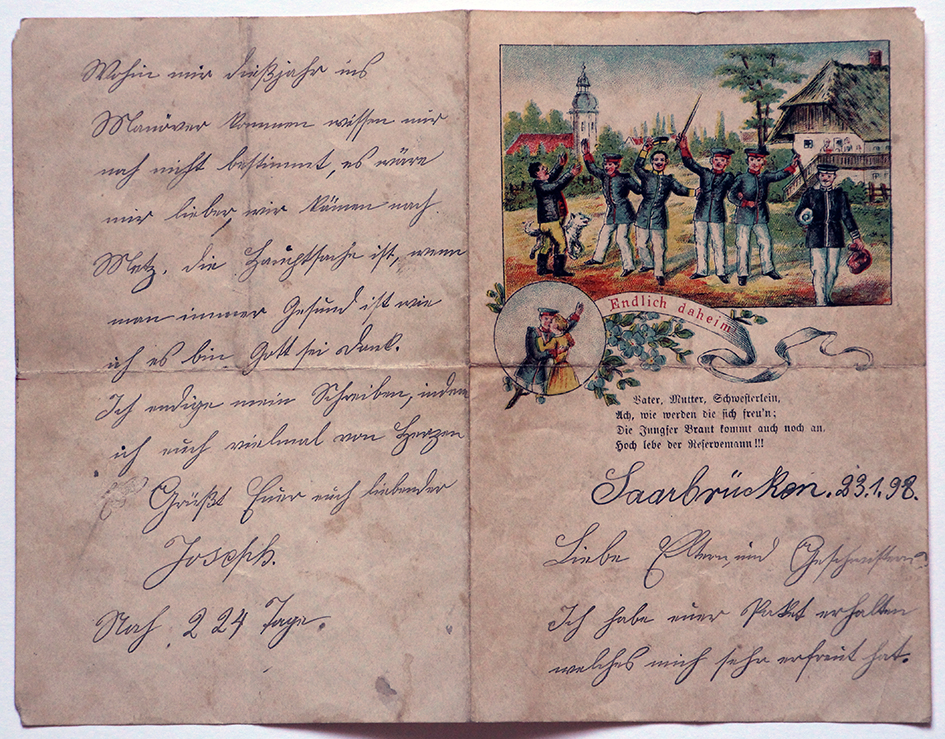 Wohin wir dießjahr ins
Manöver kommen wissen wir
noch nicht bestimmt, es wäre
mir lieber, wir kämen nach
Metz. die Hauptsache ist, wenn
man immer Gesund ist wie
ich es bin Gott sei Dank.
Ich endige mein Schreiben, indem
ich euch vielmal von Herzen
Grüßt Euer euch liebender
Joseph.
Noch 224 Tage.
Endlich daheim
Vater, Mutter, Schwesterlein,
Ach, wie werden die sich freu'n;
Die Jungfer Braut kommt auch noch an.
Hoch lebe der Reservemann!!!
Saarbrücken. 23.1.98.
Liebe Eltern und Geschwister
Ich habe euer Paket erhalten
welches mich sehr erfreut hat.